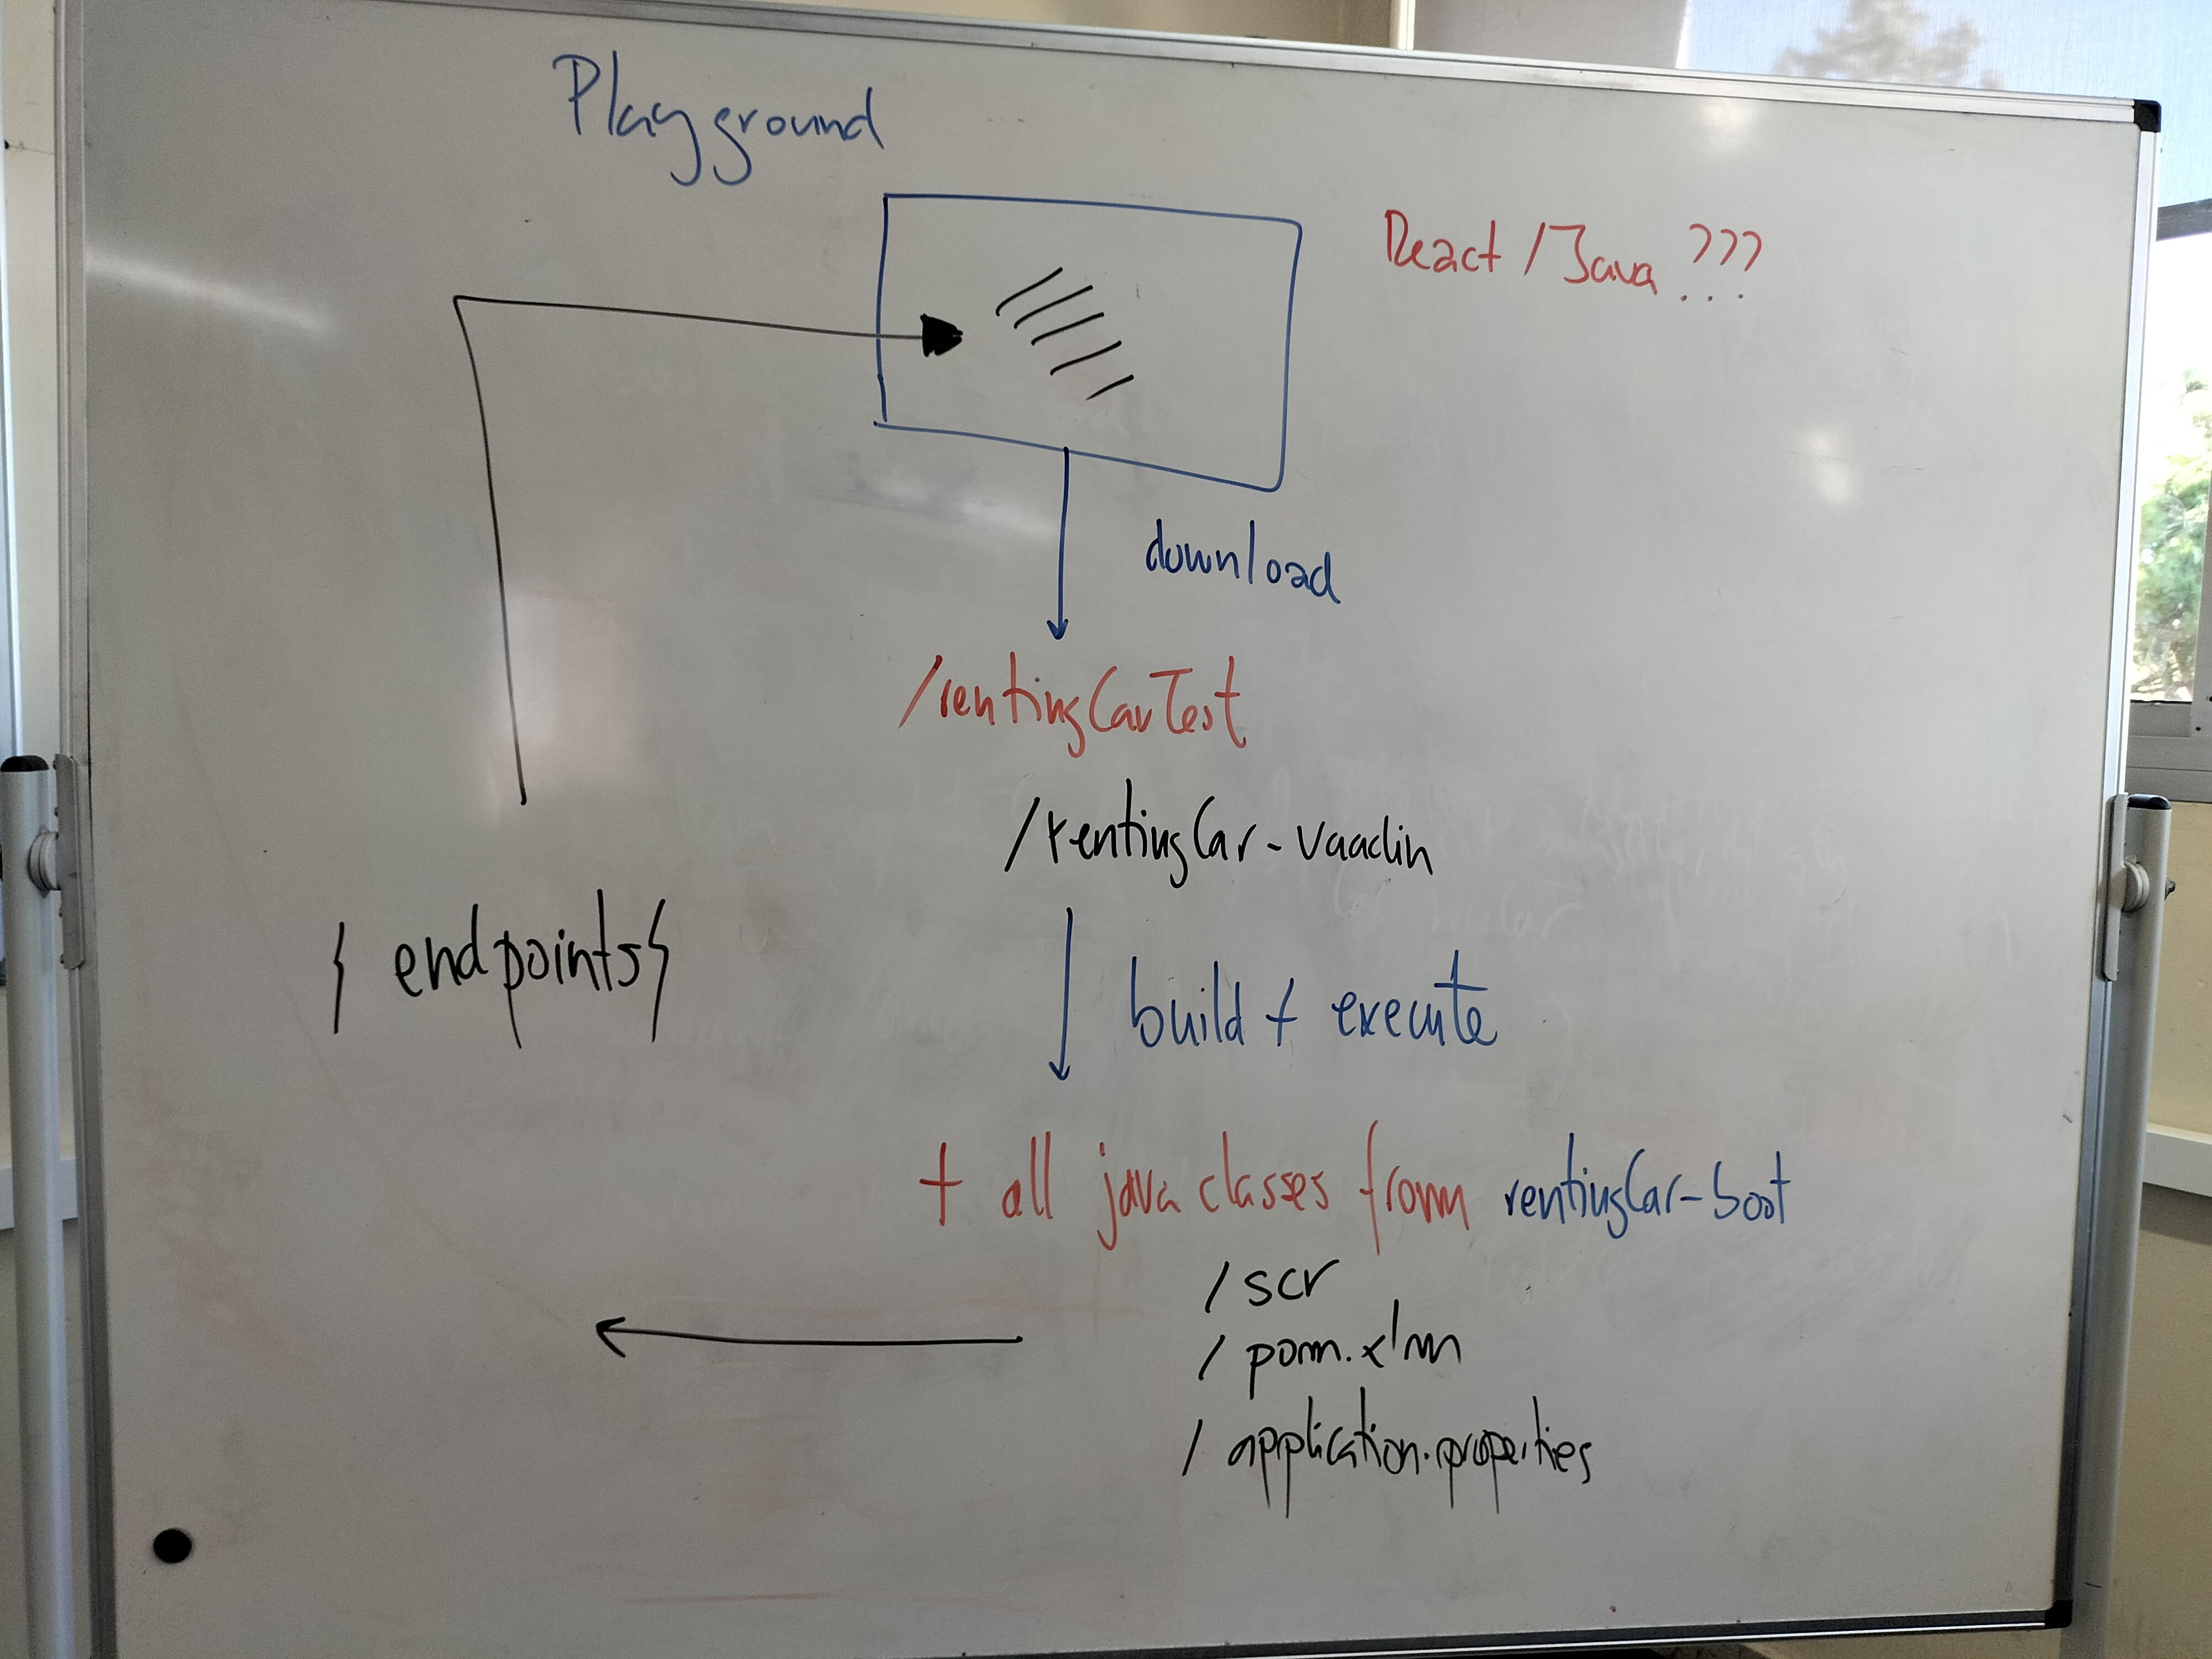 Playground
React / Java ???
download
/rentingCarTest
/rentingCar-vaadin
{ endpoints {
build + execute
+ all java classes from rentingCar-boot
/ scr
/ pom.xlm
/ application.properties